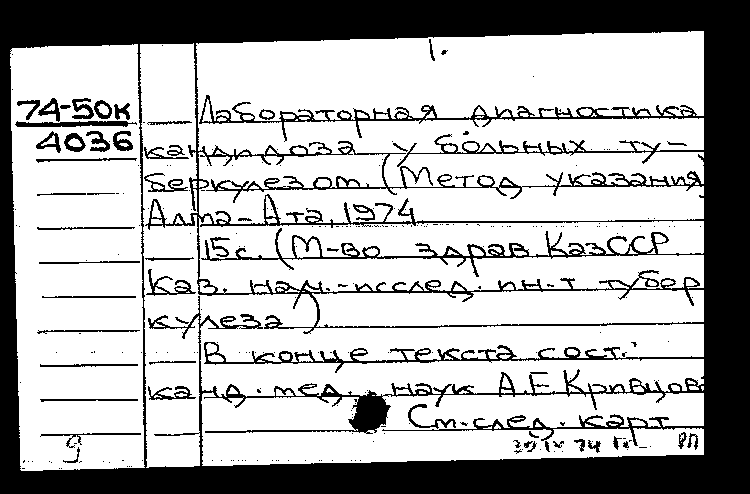 1.
74-50к
4036
Лабораторная диагностика
кандидоза у больных ту-
беркулезом. (Метод указания)
Алма-Ата, 1974
15с. (М-во здрав. КазССР.
Каз. науч.-исслед. ин-т тубер
кулеза).
В конце текста сост.:
канд. мед. наук А.Е. Кривцова
См. след. карт
9
74
РП